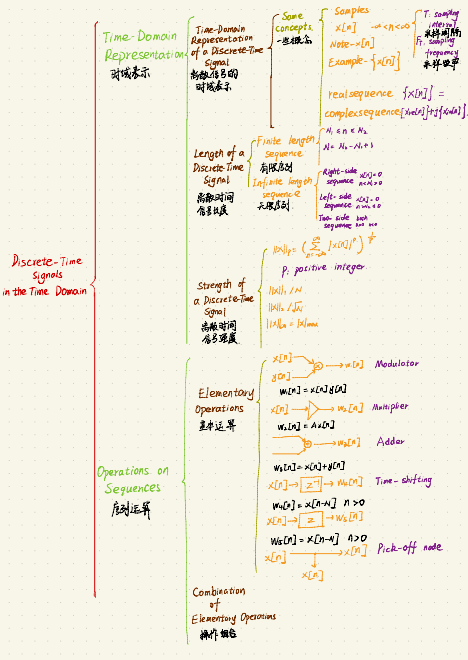 Discrete-Time
Signals
in the Time Domain
Time-Domain
Representation
时域表示
Time-Domain
Representation
of a Discrete-Time
Signal
离散信号的
时域表示
Some
concepts
一些概念
Samples
x[n] -∞<n<∞
Note-x[n]
Example-{x[n]}
T: sampling
interval
采样间隔
FT: sampling
frequency
采样频率
real sequence {x[n]} =
complex sequence {xre[n]}+j{xim[n]}
Length of a
Discrete-Time
Signal
离散时间
信号长度
Finite length
sequence
有限序列
N₁ ≤ n ≤ N₂
N = N₂ - N₁ + 1
Infinite length
sequence
无限序列
Right-side
sequence x[n]=0
n<N₁>0
Left-side
sequence x[n]=0
Two-side both
sequence
Strength of
a Discrete-Time
Signal
离散时间
信号强度
||x||p = (∑ |x[n]|^p)^1/p
n=-∞
P: positive integer
||x||₁/N
||x||₂/√N
||x||∞ = |x|max
Operations on
Sequences
序列运算
Elementary
Operations
基本运算
x[n]
y[n]
w₁[n]
Modulator
w₁[n] = x[n]y[n]
x[n] w₂[n] Multiplier
w₂[n] = Ax[n]
w₃[n] Adder
w₃[n] = x[n]+y[n]
x[n] → z⁻¹ → w₄[n] Time-shifting
w₄[n] = x[n-N] n>0
x[n] → z → w₅[n]
w₅[n] = x[n-N] n>0
x[n] x[n] Pick-off node
x[n]
Combination
of
Elementary Operations
操作组合